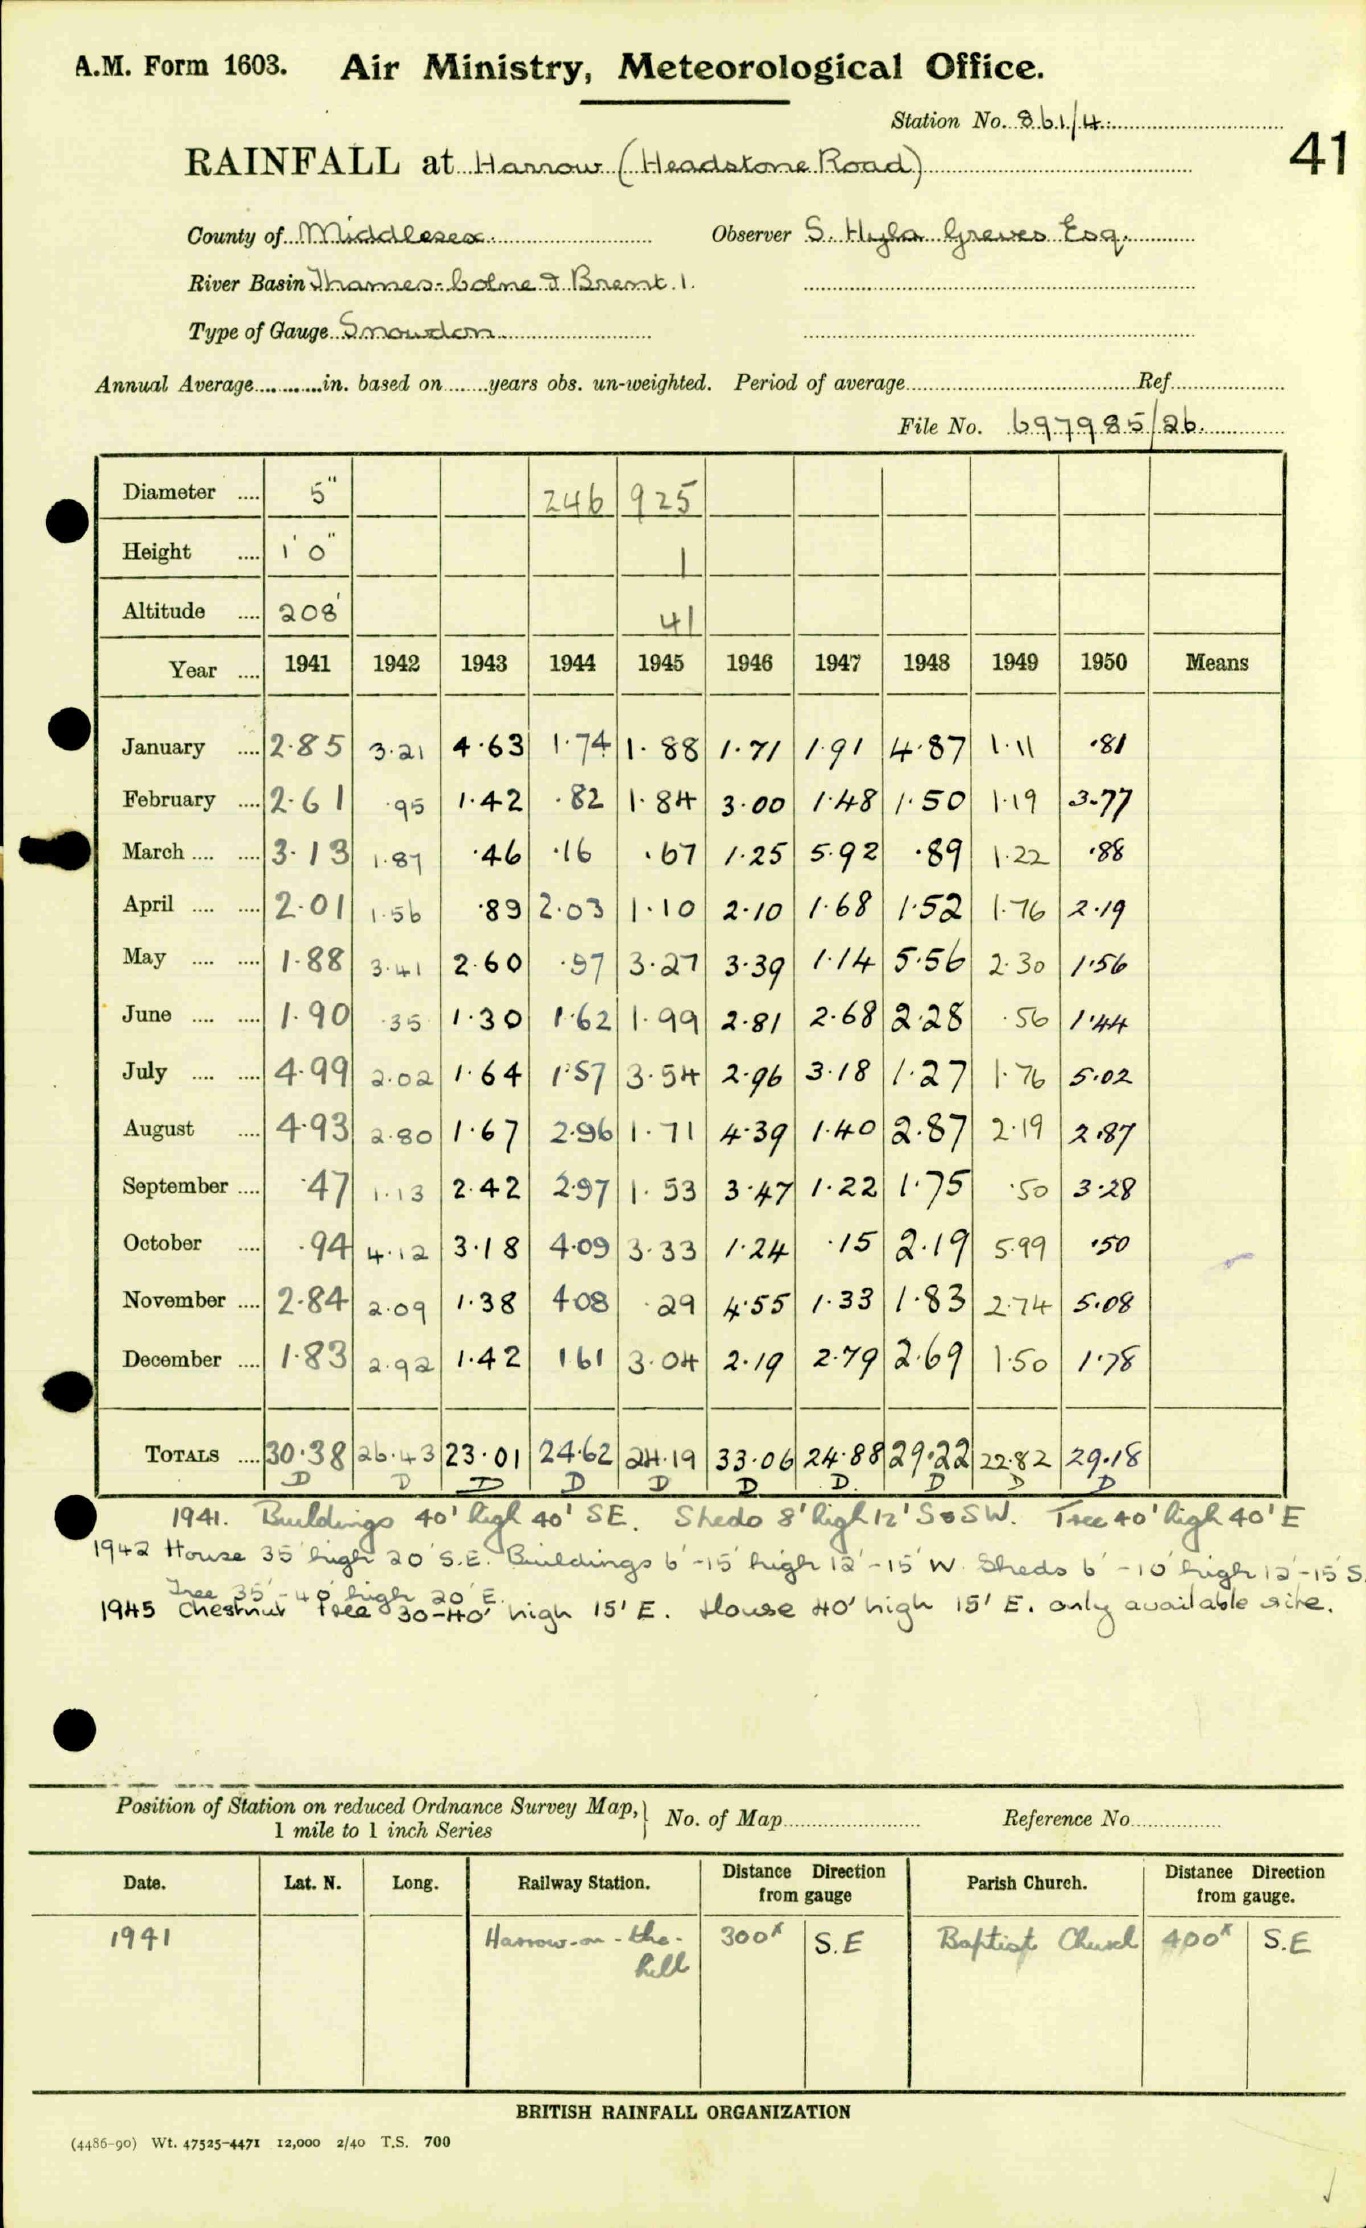 A.M. Form 1603. Air Ministry, Meteorological Office.
Station No. 861/4.
41
RAINFALL at Harrow (Headstone Road)
County of Middlesex. Observer S. Hyla Greves Esq.
River Basin Thames-Colne & Brent 1.
Type of Gauge Snowdon
Annual Average in. based on years obs. un-weighted. Period of average Ref
File No. 697985/26.
Diameter .... 5" 246 925
Height .... 1' 0" 1
Altitude .... 208' 41
Year .... 1941 1942 1943 1944 1945 1946 1947 1948 1949 1950 Means
January .... 2.85 3.21 4.63 1.74 1.88 1.71 1.91 4.87 1.11 .81
February .... 2.61 .95 1.42 .82 1.84 3.00 1.48 1.50 1.19 3.77
March .... .... 3.13 1.87 .46 .16 .67 1.25 5.92 .89 1.22 .88
April .... .... 2.01 1.56 .89 2.03 1.10 2.10 1.68 1.52 1.76 2.19
May .... .... 1.88 3.41 2.60 .97 3.27 3.39 1.14 5.56 2.30 1.56
June .... .... 1.90 .35 1.30 1.62 1.99 2.81 2.68 2.28 .56 1.44
July .... .... 4.99 2.02 1.64 1.57 3.54 2.96 3.18 1.27 1.76 5.02
August .... 4.93 2.80 1.67 2.96 1.71 4.39 1.40 2.87 2.19 2.87
September .... .47 1.13 2.42 2.97 1.53 3.47 1.22 1.75 .50 3.28
October .... .94 4.12 3.18 4.09 3.33 1.24 .15 2.19 5.99 .50
November .... 2.84 2.09 1.38 4 08 .29 4.55 1.33 1.83 2.74 5.08
December .... 1.83 2.92 1.42 1 61 3.04 2.19 2.79 2.69 1.50 1.78
TOTALS .... 30.38 26.43 23.01 24.62 24.19 33.06 24.88 29.22 22.82 29.18
D D D D D D D D D D
1941. Buildings 40' high 40' SE. Sheds 8' high 12' S & SW. Tree 40' high 40' E
1942 House 35' high 20' S.E. Buildings 6'-15' high 12'-15' W. Sheds 6'-10' high 12'-15' S.
Tree 35'-40' high 20' E.
1945 Chestnut Tree 30-40' high 15' E. House 40' high 15' E. only available site.
Position of Station on reduced Ordnance Survey Map, No. of Map Reference No
1 mile to 1 inch Series
Date. Lat. N. Long. Railway Station. Distance Direction from gauge Parish Church. Distance Direction from gauge.
1941 Harrow-on-the-hill 300x S.E Baptist Church 400x S.E
BRITISH RAINFALL ORGANIZATION
(4486-90) Wt. 47525-4471 12,000 2/40 T.S. 700